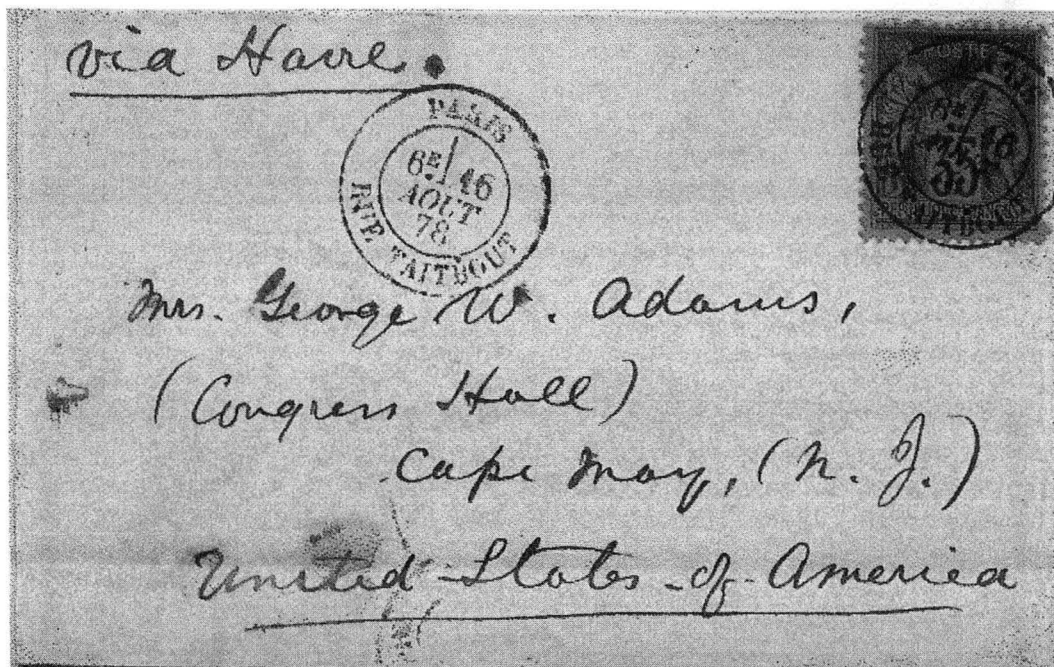 via Havre.
PARIS
6E 16
AOUT
78
RUE TAITBOUT
POSTE
6E 16
35
Mrs. George W. Adams,
(Congress Hall)
Cape May, (N. J.)
United-States-of-America